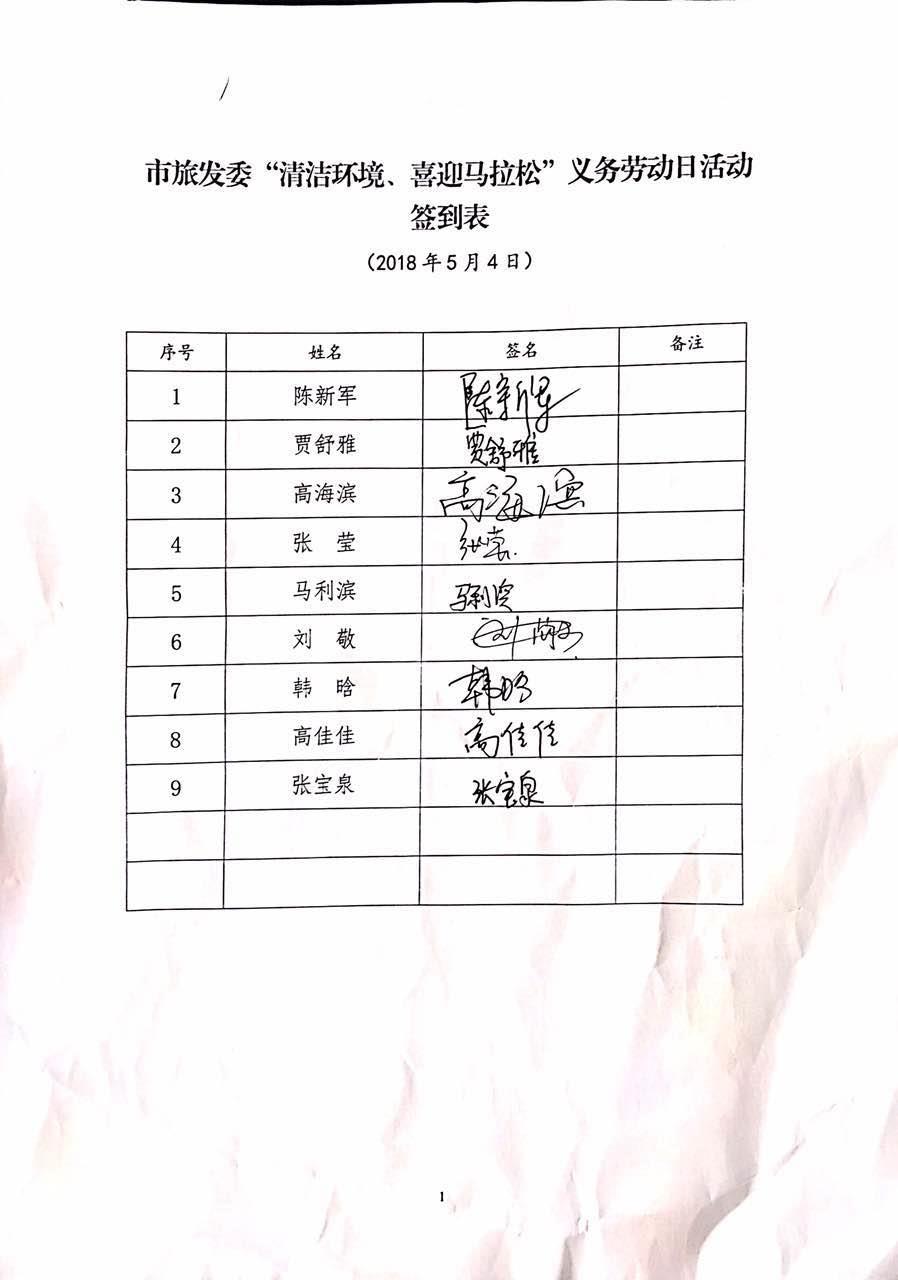 市旅发委“清洁环境、喜迎马拉松”义务劳动日活动
签到表
（2018年5月4日）
序号 姓名 签名 备注
1 陈新军 陈新军
2 贾舒雅 贾舒雅
3 高海滨 高海滨
4 张 莹 张莹
5 马利滨 马利滨
6 刘 敬 刘敬
7 韩 晗 韩晗
8 高佳佳 高佳佳
9 张宝泉 张宝泉
1